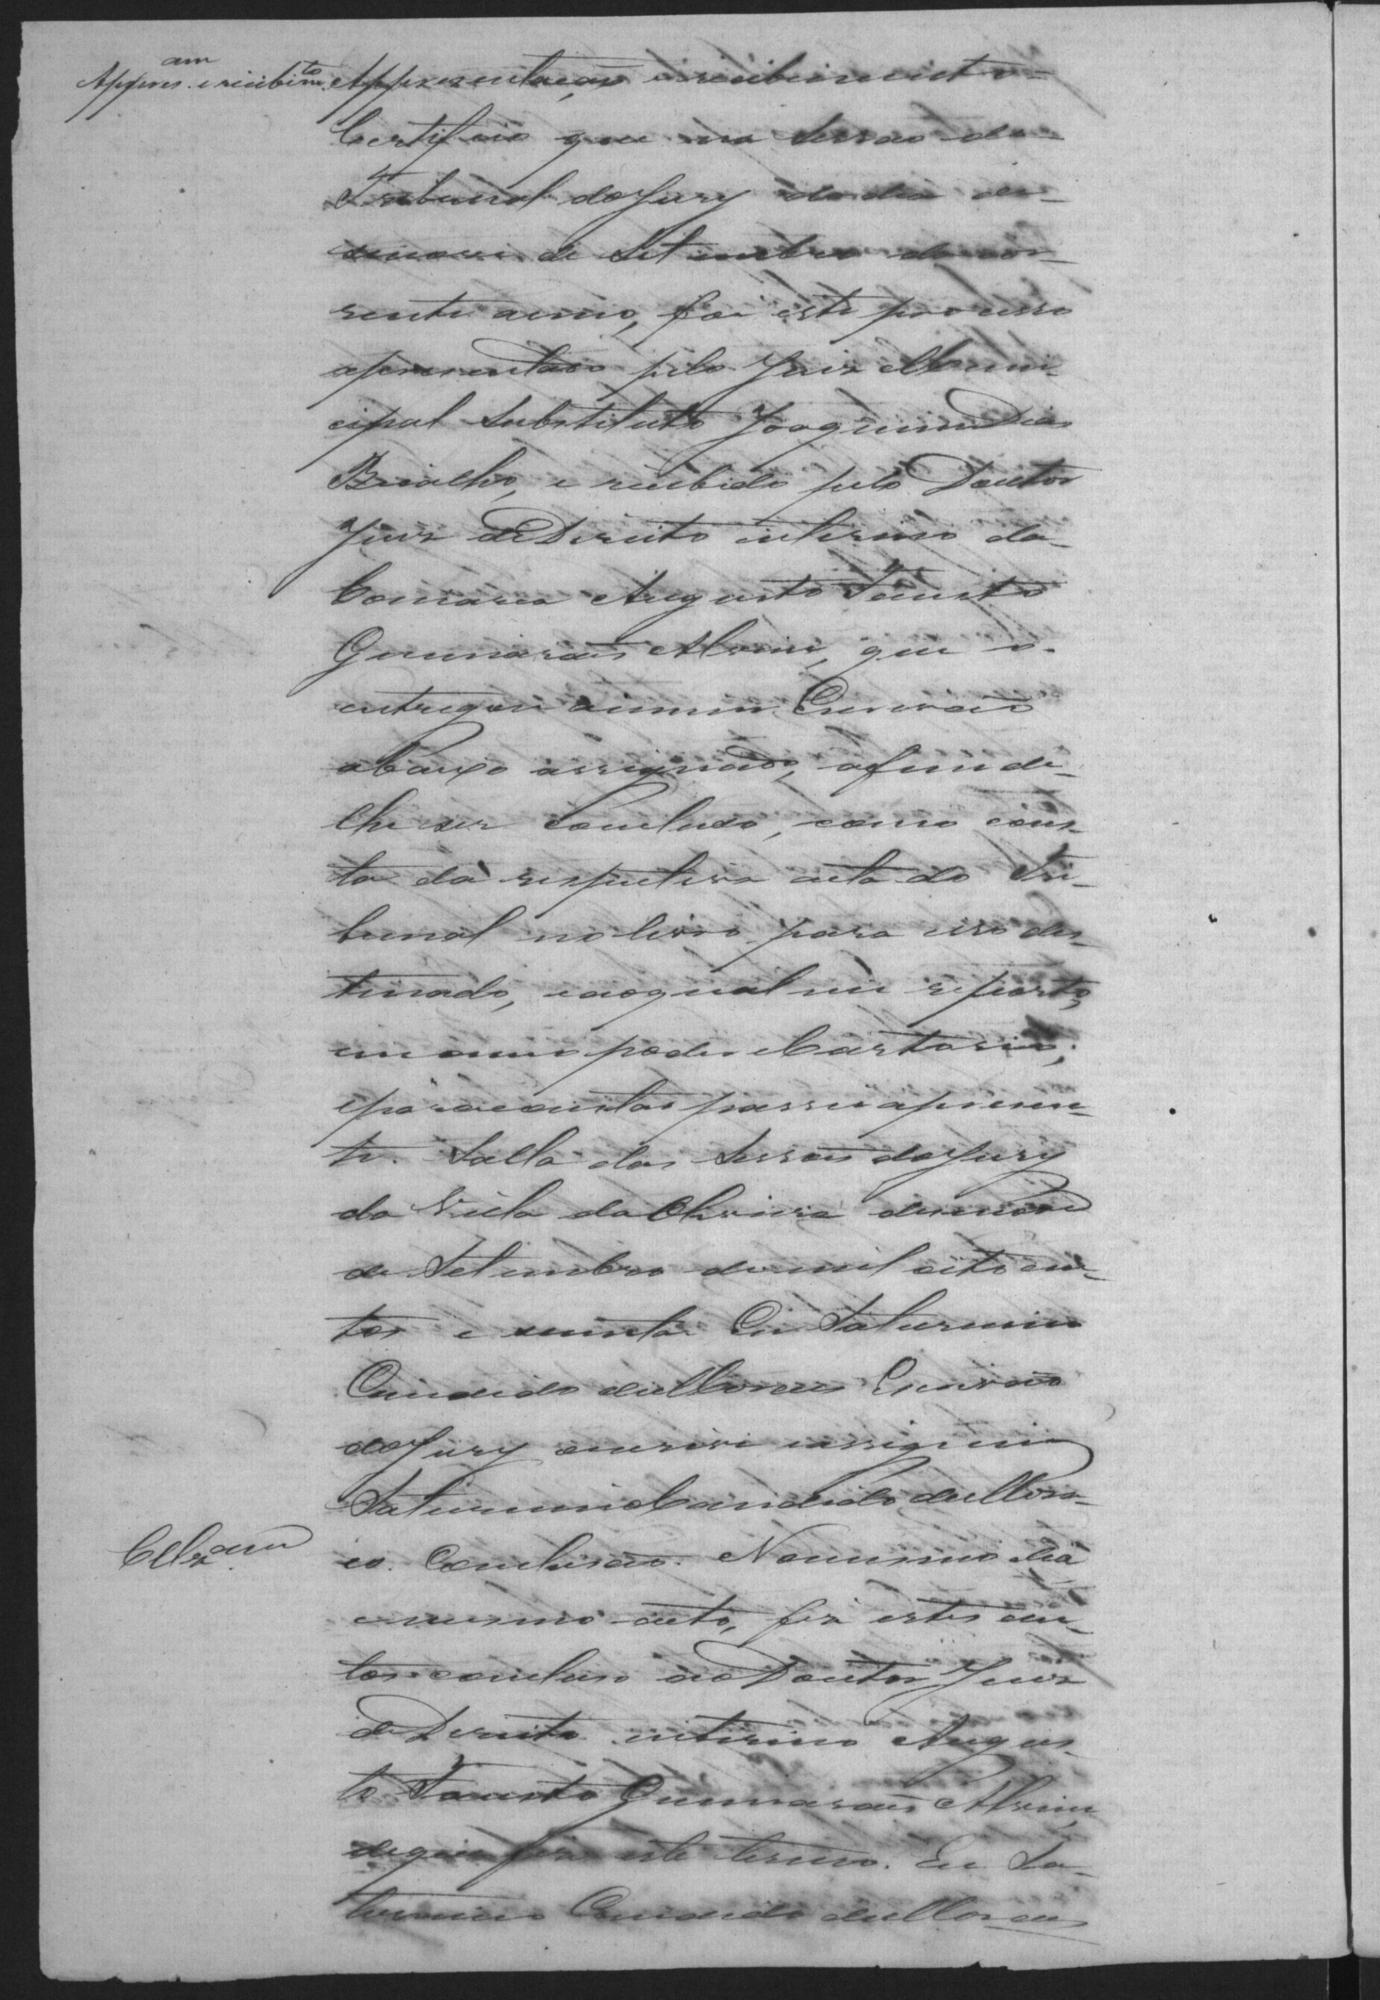 Appresentação e recebimento
Appres.am e recebim.to
Certifico que na sessão do
Tribunal do Jury do dia de-
senove de Setembro do cor-
rente anno, foi este processo
apresentado pelo Juiz Muni-
cipal Substituto Joaquim Dias
e recebido pelo Doutor
Juiz de Direito interino da
Comarca Augusto Fausto
Guimarães Alvim, que o
entregou a mim Escrivão
abaixo assignado, afim de
lhe ser concluso, como cons-
ta da respectiva acta do Tri-
bunal no livro para isso des-
tinado, e ao qual me reporto,
em meu poder e Cartorio;
e para constar passei a presen-
te. Salla das Sessões do Jury
da Villa da desenove
de Setembro de mil oito cen-
tos e Eu Saturnino
Candido de Moraes Escrivão
do Jury escrevi e assignei
Saturnino Candido de Mora-
Clz.am
es. Conclusão. No mesmo dia
e mesmo acto, fiz estes au-
tos concluso ao Doutor Juiz
de Direito interino Augus-
to Fausto Guimarães Alvim,
de que fiz este termo. Eu Sa-
turnino Candido de Moraes